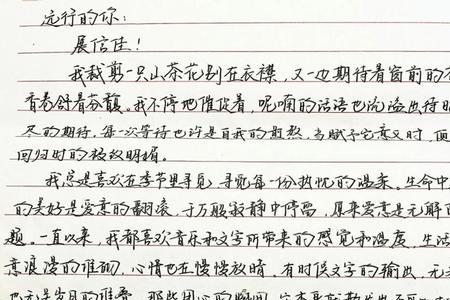 远行的你：
展信佳！
我裁剪一只山茶花别在衣襟，又一边期待着窗前的
香着舒着芬馥。我不停地催促着，呢喃的话语也沉溢出待
尽的期待，每一次等待也许是自我的煎熬，当赋予它意义时，
回归时的极致明媚。
我总是喜欢在季节里寻觅，寻觅每一份热忱的温柔。生命中
的美好是爱意的翻滚，于万般寂静中停留，原来爱意是无解
题。一直以来，我都喜欢音乐和文字所带来的感觉和温度，生活
意浪漫的堆砌，心情也在慢慢放晴。有时候文字的输出，无